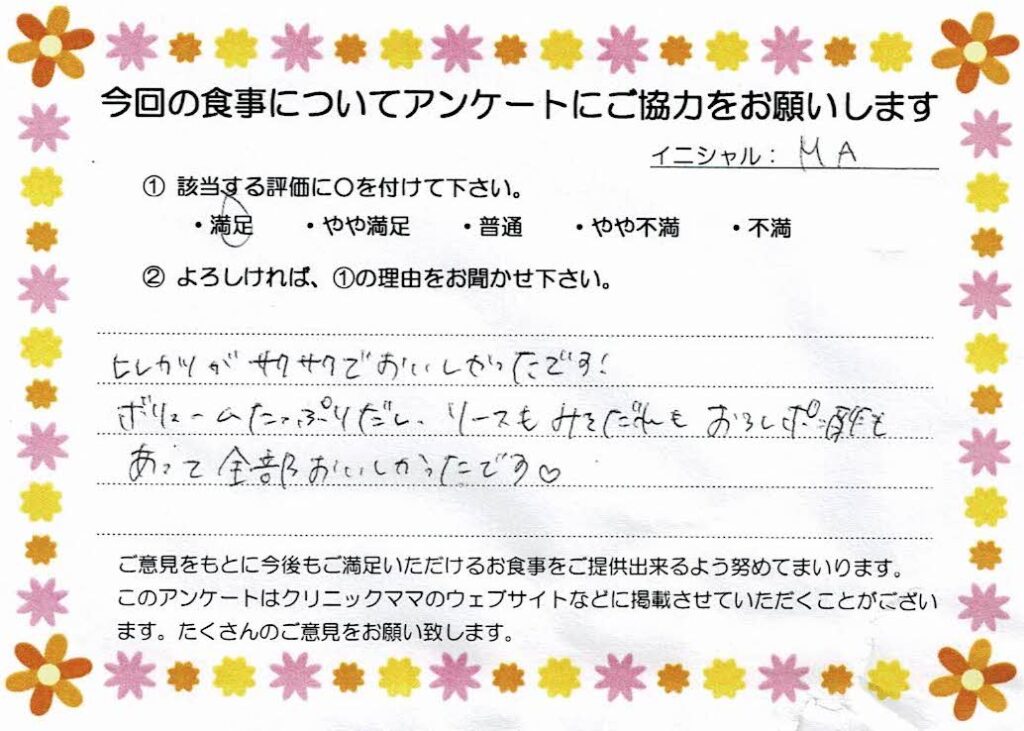 今回の食事についてアンケートにご協力をお願いします
イニシャル： MA
① 該当する評価に〇を付けて下さい。
・満足 ・やや満足 ・普通 ・やや不満 ・不満
② よろしければ、①の理由をお聞かせ下さい。
ヒレカツがサクサクでおいしかったです!
ボリュームたっぷりだし、ソースもみそだれもおろしポン酢も
あって全部おいしかったです♡
ご意見をもとに今後もご満足いただけるお食事をご提供出来るよう努めてまいります。
このアンケートはクリニックママのウェブサイトなどに掲載させていただくことがござい
ます。たくさんのご意見をお願い致します。